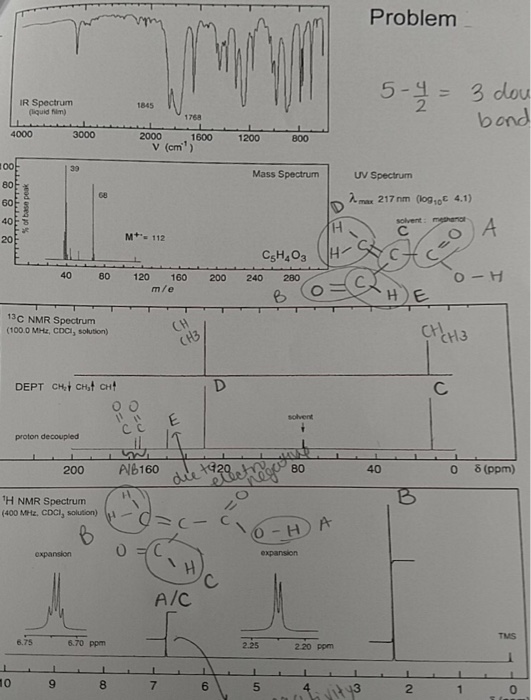 Problem
5 - 4/2 = 3 dou
bond
IR Spectrum
(liquid film)
1845
1768
4000 3000 2000 1600 1200 800
V (cm⁻¹)
100
80
60
40
20
% of base peak
39
68
M⁺· = 112
Mass Spectrum
C₅H₄O₃
40 80 120 160 200 240 280
m/e
UV Spectrum
λmax 217 nm (log₁₀ε 4.1)
solvent : methanol
D
H
H-C=C-C=O
C
A
O-H
B O=C
H E
¹³C NMR Spectrum
(100.0 MHz, CDCl₃ solution)
CH
CH3
CH, CH3
DEPT CH₂↓ CH₃↑ CH↑
D
C
O O
C C
E
solvent
proton decoupled
200 160 120 80 40 0 δ (ppm)
A/B
due to
electro
negative
¹H NMR Spectrum
(400 MHz, CDCl₃ solution)
H
H-C=C-C
O
O-H A
B
O=C
H
C
B
expansion
expansion
A/C
6.75 6.70 ppm
2.25 2.20 ppm
TMS
10 9 8 7 6 5 4 3 2 1 0